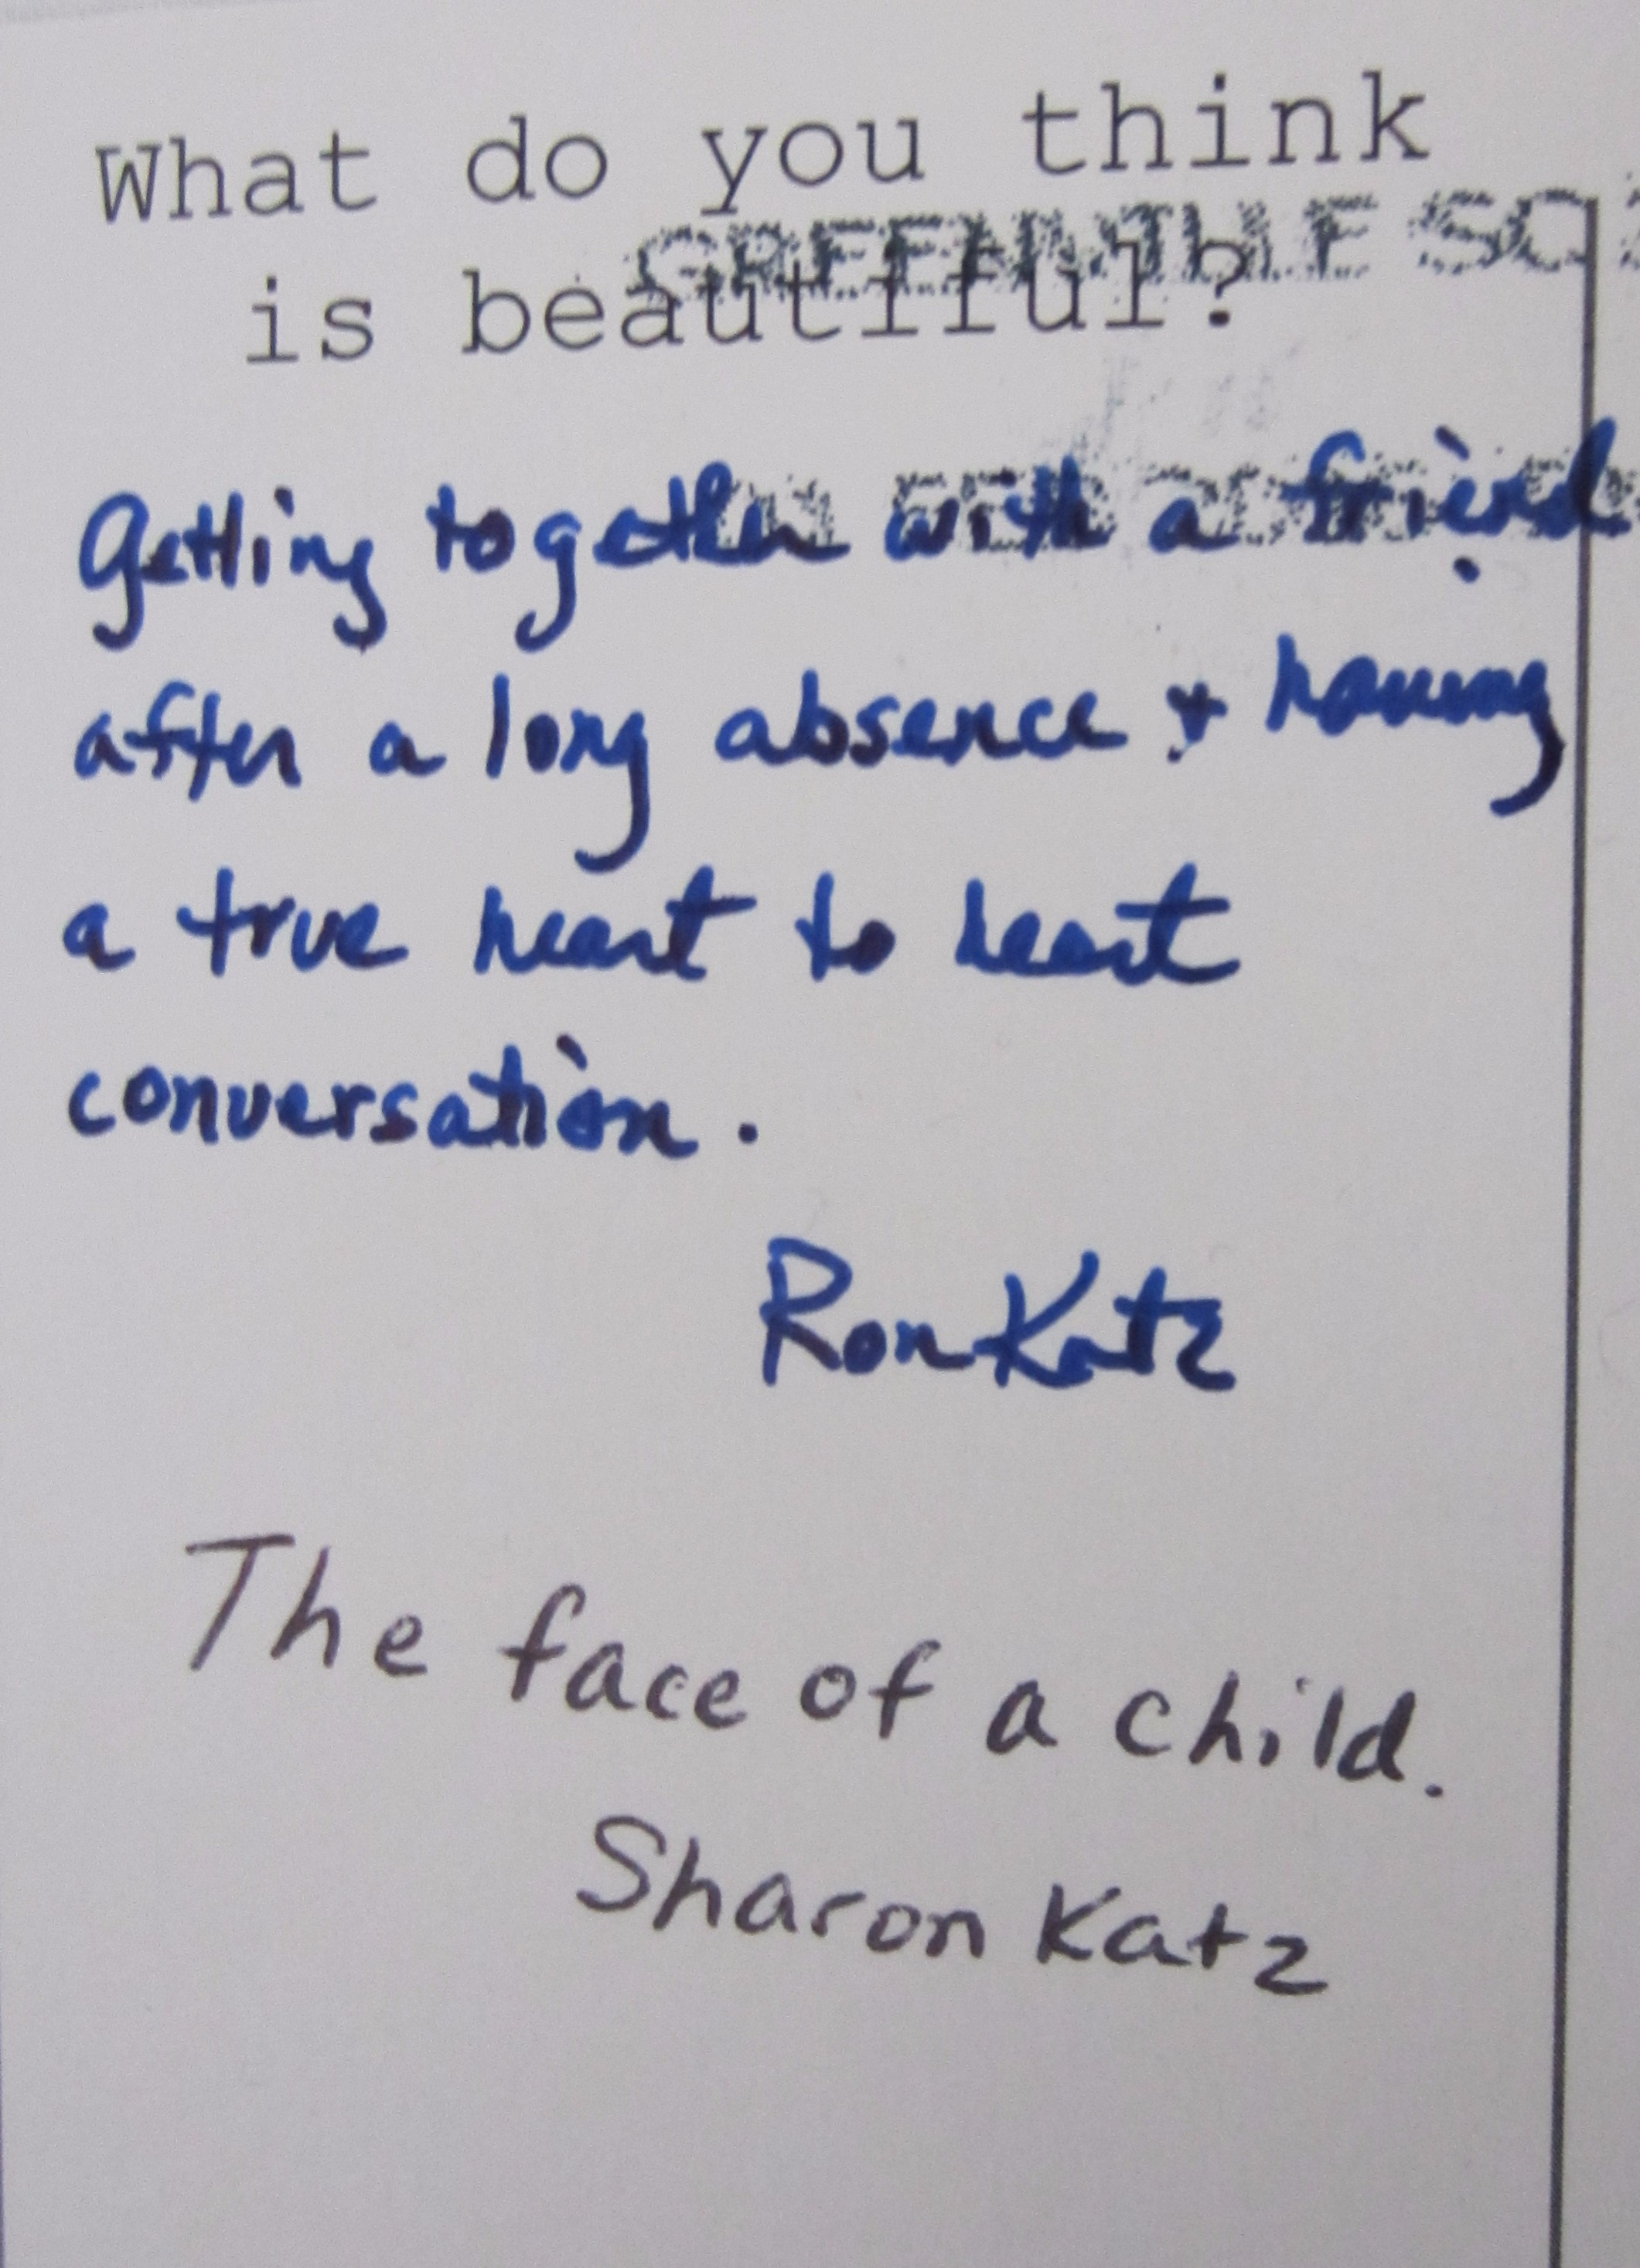 What do you think
is beautiful?
GREENVILLE SC
Getting together with a friend
after a long absence & having
a true heart to heart
conversation.
Ron Katz
The face of a child.
Sharon Katz